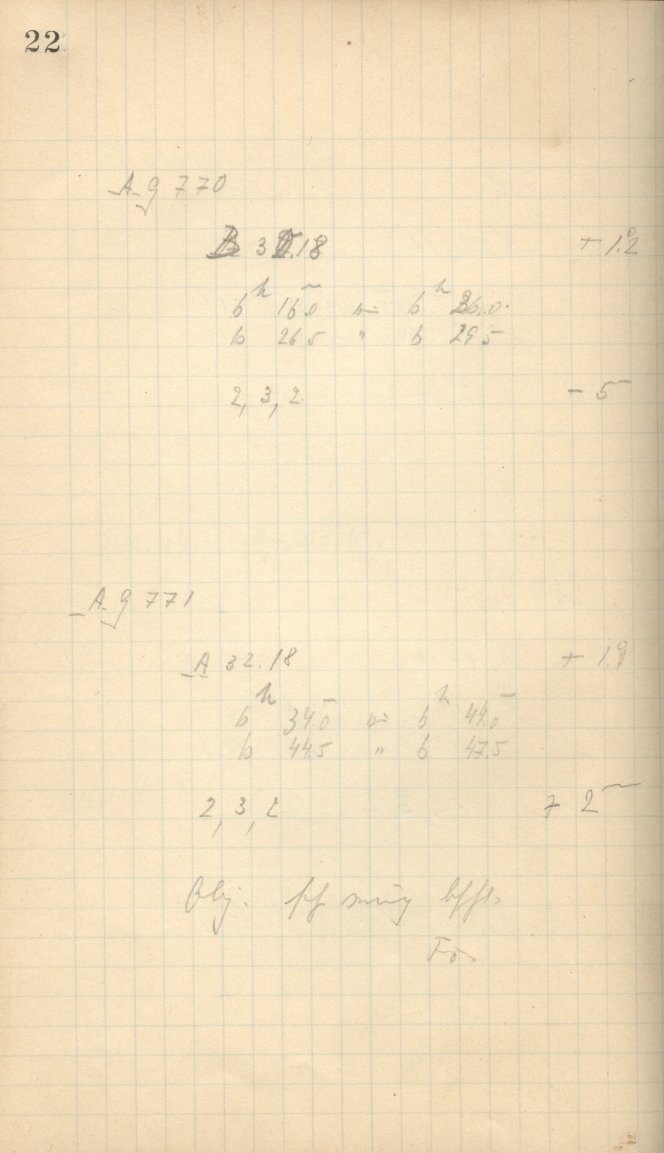 22
A g 770
B 30.18 + 1.2
6 h 16.0 – 6 h 26.0
6 26.5 " 6 29.5
2, 3, 2 - 5
A g 771
A 32.18 + 1.9
6 h 34.0 6 h 44.0
6 44.5 " 6 47.5
2, 3, 2 + 2
Obj.
Fo